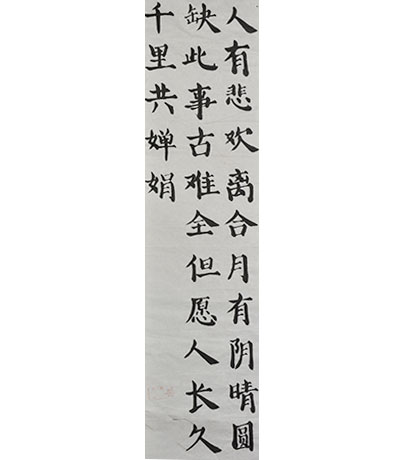 人有悲欢离合月有阴晴圆
缺此事古难全但愿人长久
千里共婵娟